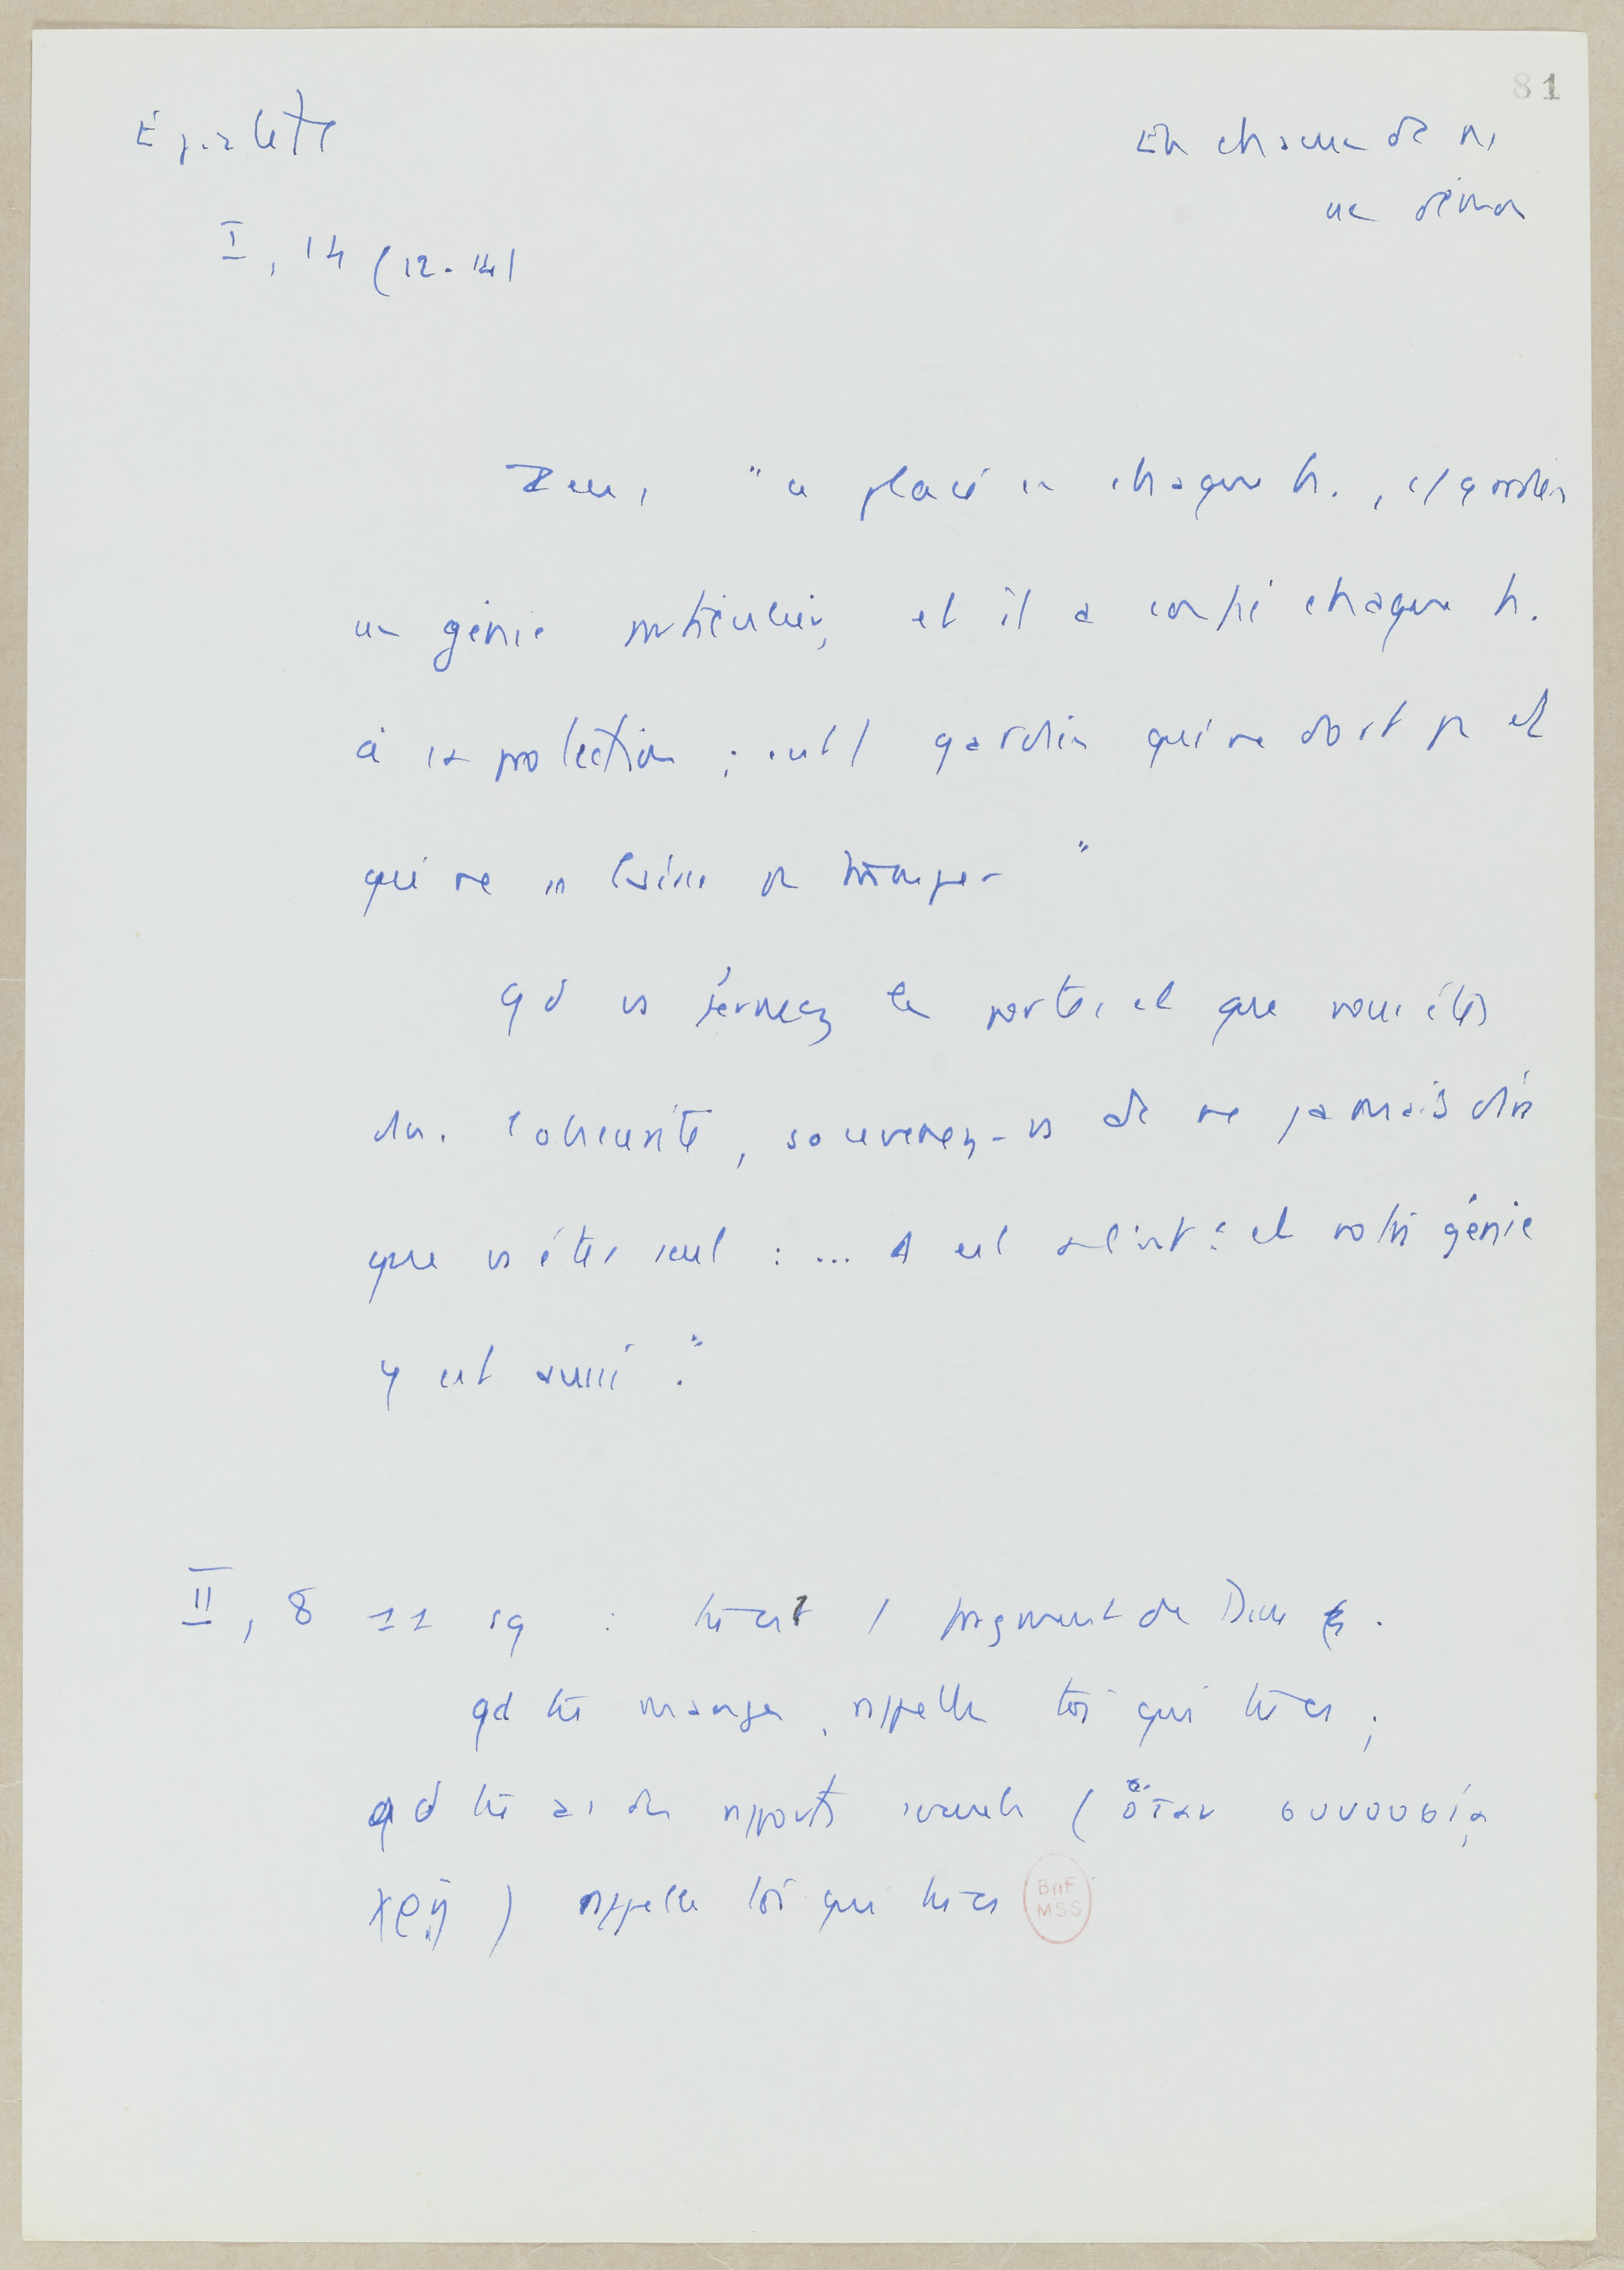 81
Epictète
En chacun de ns
un démon
I, 14 (12-14)
Zeus, "a placé en chaque h., c/ gardien
un génie particulier, et il a confié chaque h.
à sa protection ; c'est 1 gardien qui ne dort pas et
qui ne se laisse pas tromper"
qd vs fermez les portes et que vous êtes
dans l'obscurité, souvenez-vs de ne jamais dire
que vs êtes seul : ... est et votre génie
y est aussi."
II, 8 11 sq : tu es 1 fragment de Dieu.
qd tu manges, rappelle toi qui tu es ;
qd tu as des rapports sexuels (ὅταν συνουσίᾳ
χρῇ) rappelle toi qui tu es
BnF
MSS